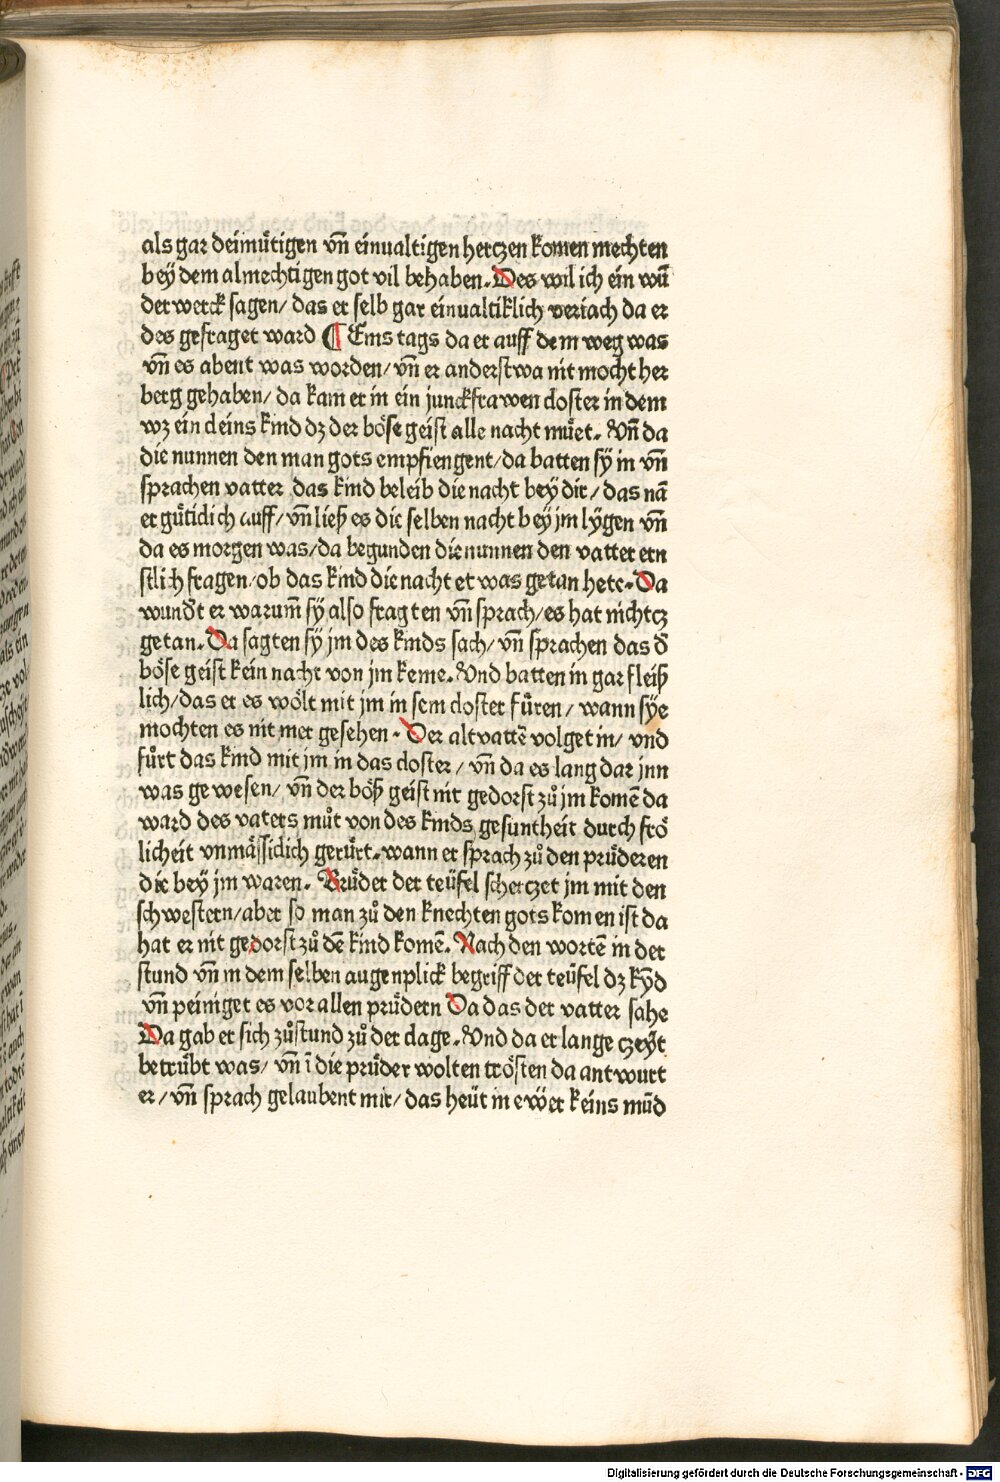 als gar deimütigen vn̄ einualtigen hertzen komen mechten
bey dem almechtigen got vil behaben. Des wil ich ein wū
der werck sagen/ das er selb gar einualtiklich veriach da er
des gefraget ward ¶ Eins tags da er auff dem weg was
vn̄ es abent was worden/ vn̄ er anderstwa nit mocht her
berg gehaben/ da kam er in ein junckfrawen closter in dem
wz ein cleins kind dz der böse geist alle nacht müet. Vn̄ da
die nunnen den man gots empfiengent/ da batten sÿ in vn̄
sprachen vatter das kind beleib die nacht bey dir/ das nā
er gütlich auff/ vn̄ ließ es die selben nacht bey jm lÿgen vn̄
da es morgen was/ da begunden die nunnen den vatter ern
stlich fragen/ ob das kind die nacht et was getan hete. Da
wundt er warum̄ sÿ also fragten vn̄ sprach/ es hat nichtz
getan. Da sagten sÿ jm des kinds sach/ vn̄ sprachen das d̄
böse geist kein nacht von jm keme. Vnd batten in gar fleiß
lich/ das er es wölt mit jm in sein closter fůren/ wann sÿe
mochten es nit mer gesehen. Der altvattē volget in/ vnd
fůrt das kind mit jm in das closter/ vn̄ da es lang dar jnn
was gewesen/ vn̄ der böß geist nit gedorst zů jm komē da
ward des vaters můt von des kinds gesuntheit durch frö
licheit vnmässiclich gerürt. wann er sprach zů den prüderen
die bey jm waren. Brüder der teüfel schertzet jm mit den
schwestern/ aber so man zů den knechten gots komen ist da
hat er nit gedorst zů dē kind komē. Nach den wortē in der
stund vn̄ in dem selben augenplick begriff der teüfel dz kÿd
vn̄ peiniget es vor allen prüdern Da das der vatter sahe
Da gab er sich zůstund zů der clage. Vnd da er lange czeÿt
betrübt was/ vn̄ ī die prüder wolten trösten da antwurt
er/ vn̄ sprach gelaubent mir/ das heüt in ewer keins mūd
Digitalisierung gefördert durch die Deutsche Forschungsgemeinschaft - DFG